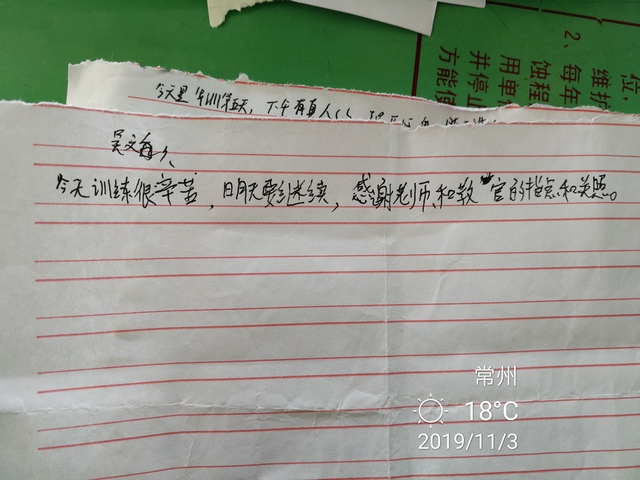 位，
维护
2、每年
蚀程
用单
并停止
方能使
今天是军训第五天，下午有真人
吴文
今天训练很辛苦，明天要继续，感谢老师、和教官的指点和关照。
常州
18°C
2019/11/3